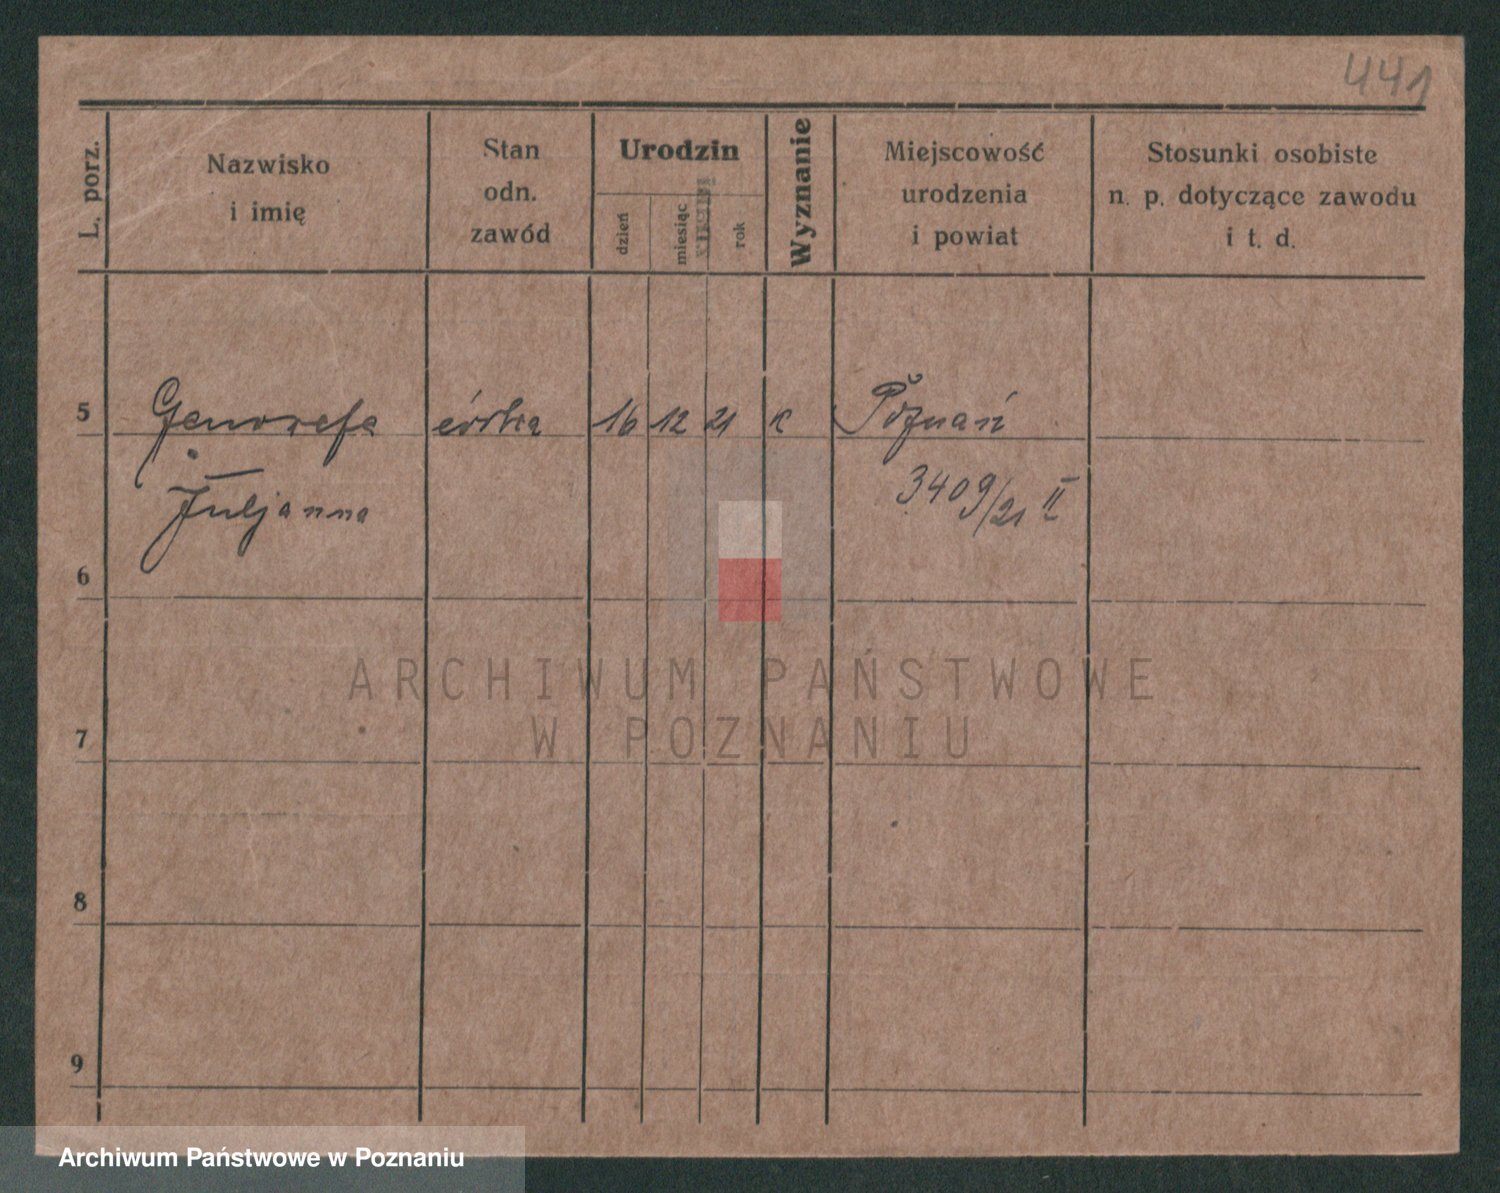 441
L. porz.
Nazwisko
i imię
Stan
odn.
zawód
Urodzin
dzień
miesiąc
rok
Wyznanie
Miejscowość
urodzenia
i powiat
Stosunki osobiste
n. p. dotyczące zawodu
i t. d.
5 Genowefa córka 16 12 21 k Poznań
Juljanna 3409/21 II
6
7
8
9
ARCHIWUM PAŃSTWOWE
W POZNANIU
Archiwum Państwowe w Poznaniu